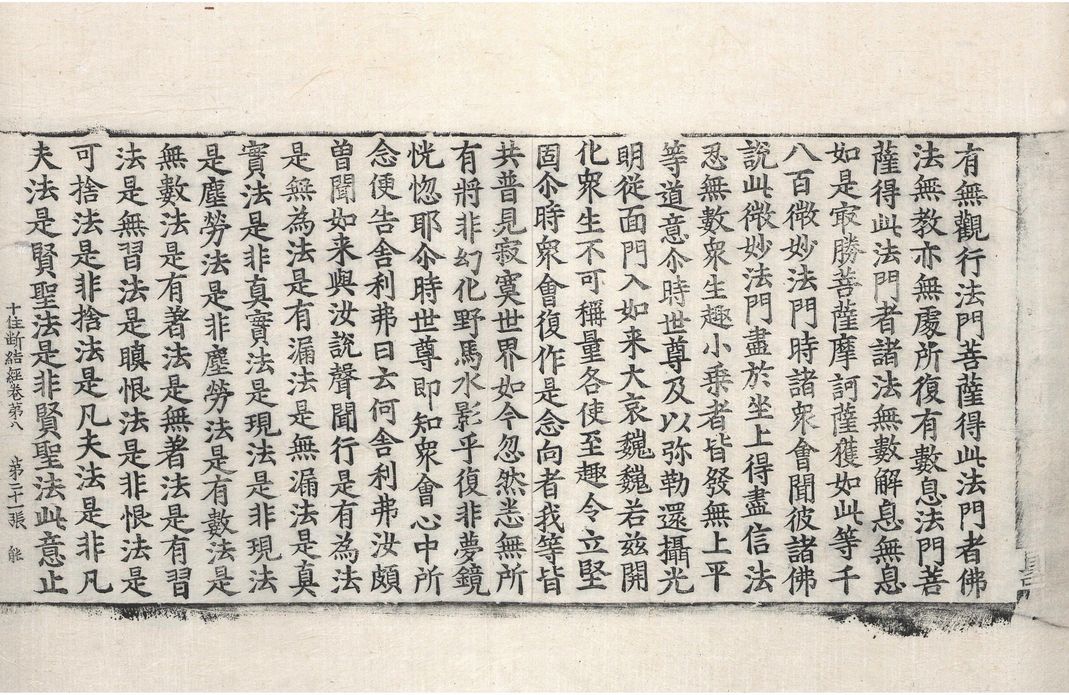 有無觀行法門菩薩得此法門者佛
法無教亦無處所復有數息法門菩
薩得此法門者諸法無數解息無息
如是㝡勝菩薩摩訶薩獲如此等千
八百微妙法門時諸衆會聞彼諸佛
說此微妙法門盡於坐上得盡信法
忍無數衆生趣小乗者皆發無上平
等道意尒時世尊及以弥勒還攝光
明從面門入如来大哀巍巍若兹開
化衆生不可稱量各使至趣令立堅
固尒時衆會復作是念向者我等皆
共普見寂寞世界如今忽然悉無所
有將非幻化野馬水影乎復非夢鏡
恍惚耶尒時世尊即知衆會心中所
念便告舍利弗曰云何舍利弗汝頗
曽聞如来與汝說聲聞行是有為法
是無為法是有漏法是無漏法是真
實法是非真實法是現法是非現法
是塵勞法是非塵勞法是有數法是
無數法是有著法是無著法是有習
法是無習法是瞋恨法是非恨法是
可捨法是非捨法是凡夫法是非凡
夫法是賢聖法是非賢聖法此意止
十住断結經卷第八 第二十一張 能